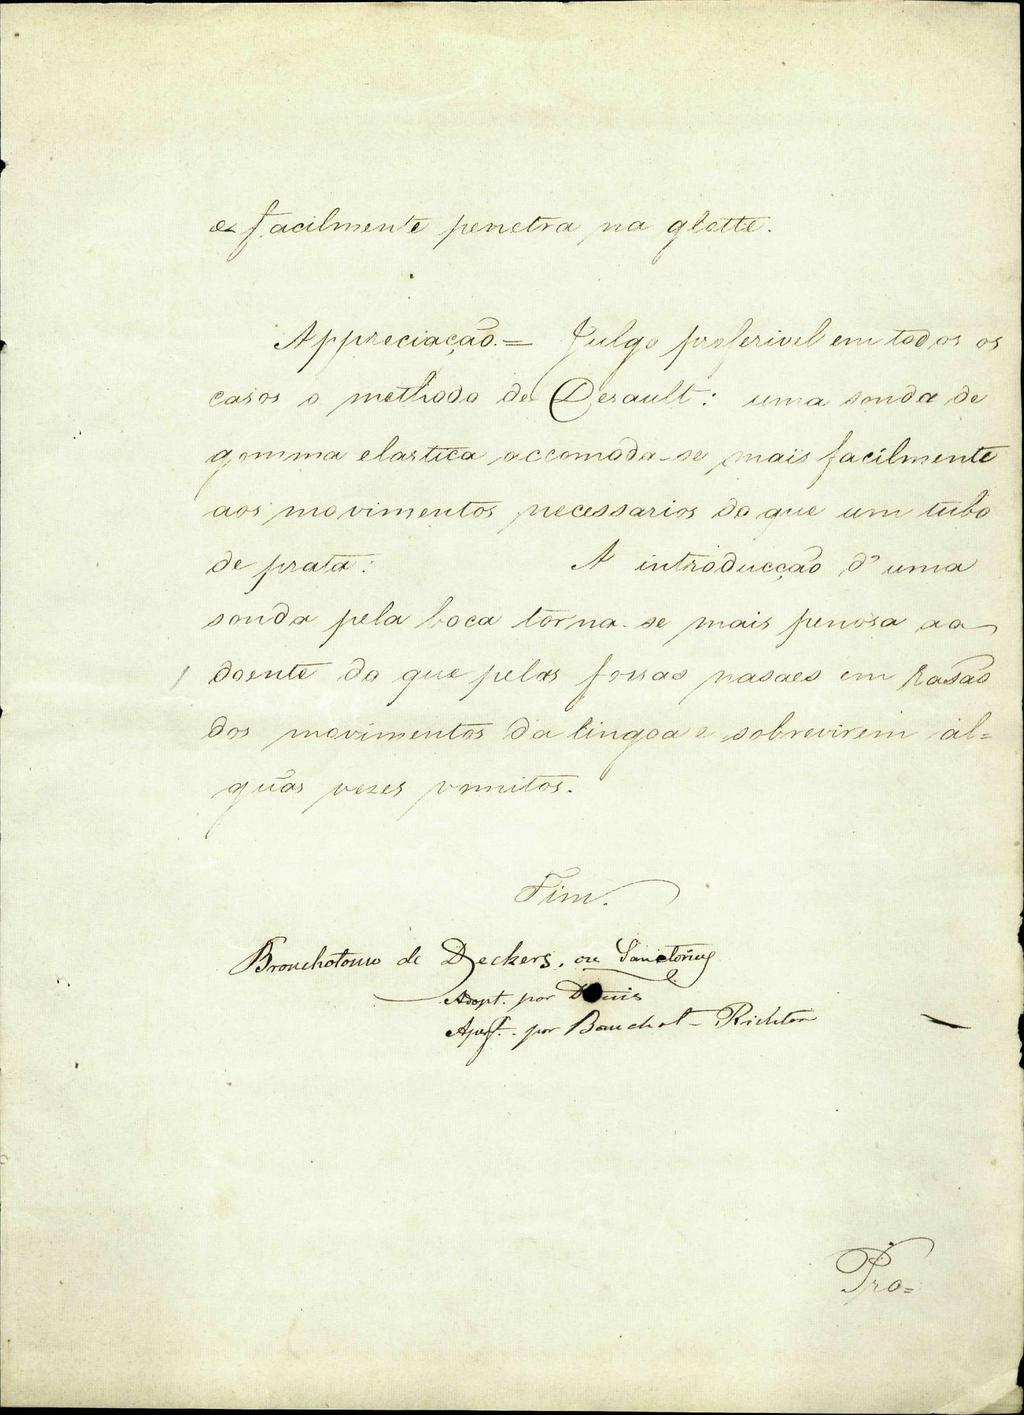 e facilmente penetra na glotte.
Appreciação.= Julgo preferivel em todos os
casos o methodo de Desault: uma sonda de
gomma elastica accomoda-se mais facilmente
aos movimentos necessarios do que um tubo
de prata: A introducção d'uma
sonda pela boca torna-se mais penosa ao
doente do que pelas fossas nasaes em rasão
dos movimentos da lingoa e sobrevirem al=
guãs vezes vomitos.
Fim.
Bronchotomo de Deckers, ou Sanctorius
Adopt. por
por Bauchot - Richter
Pro=